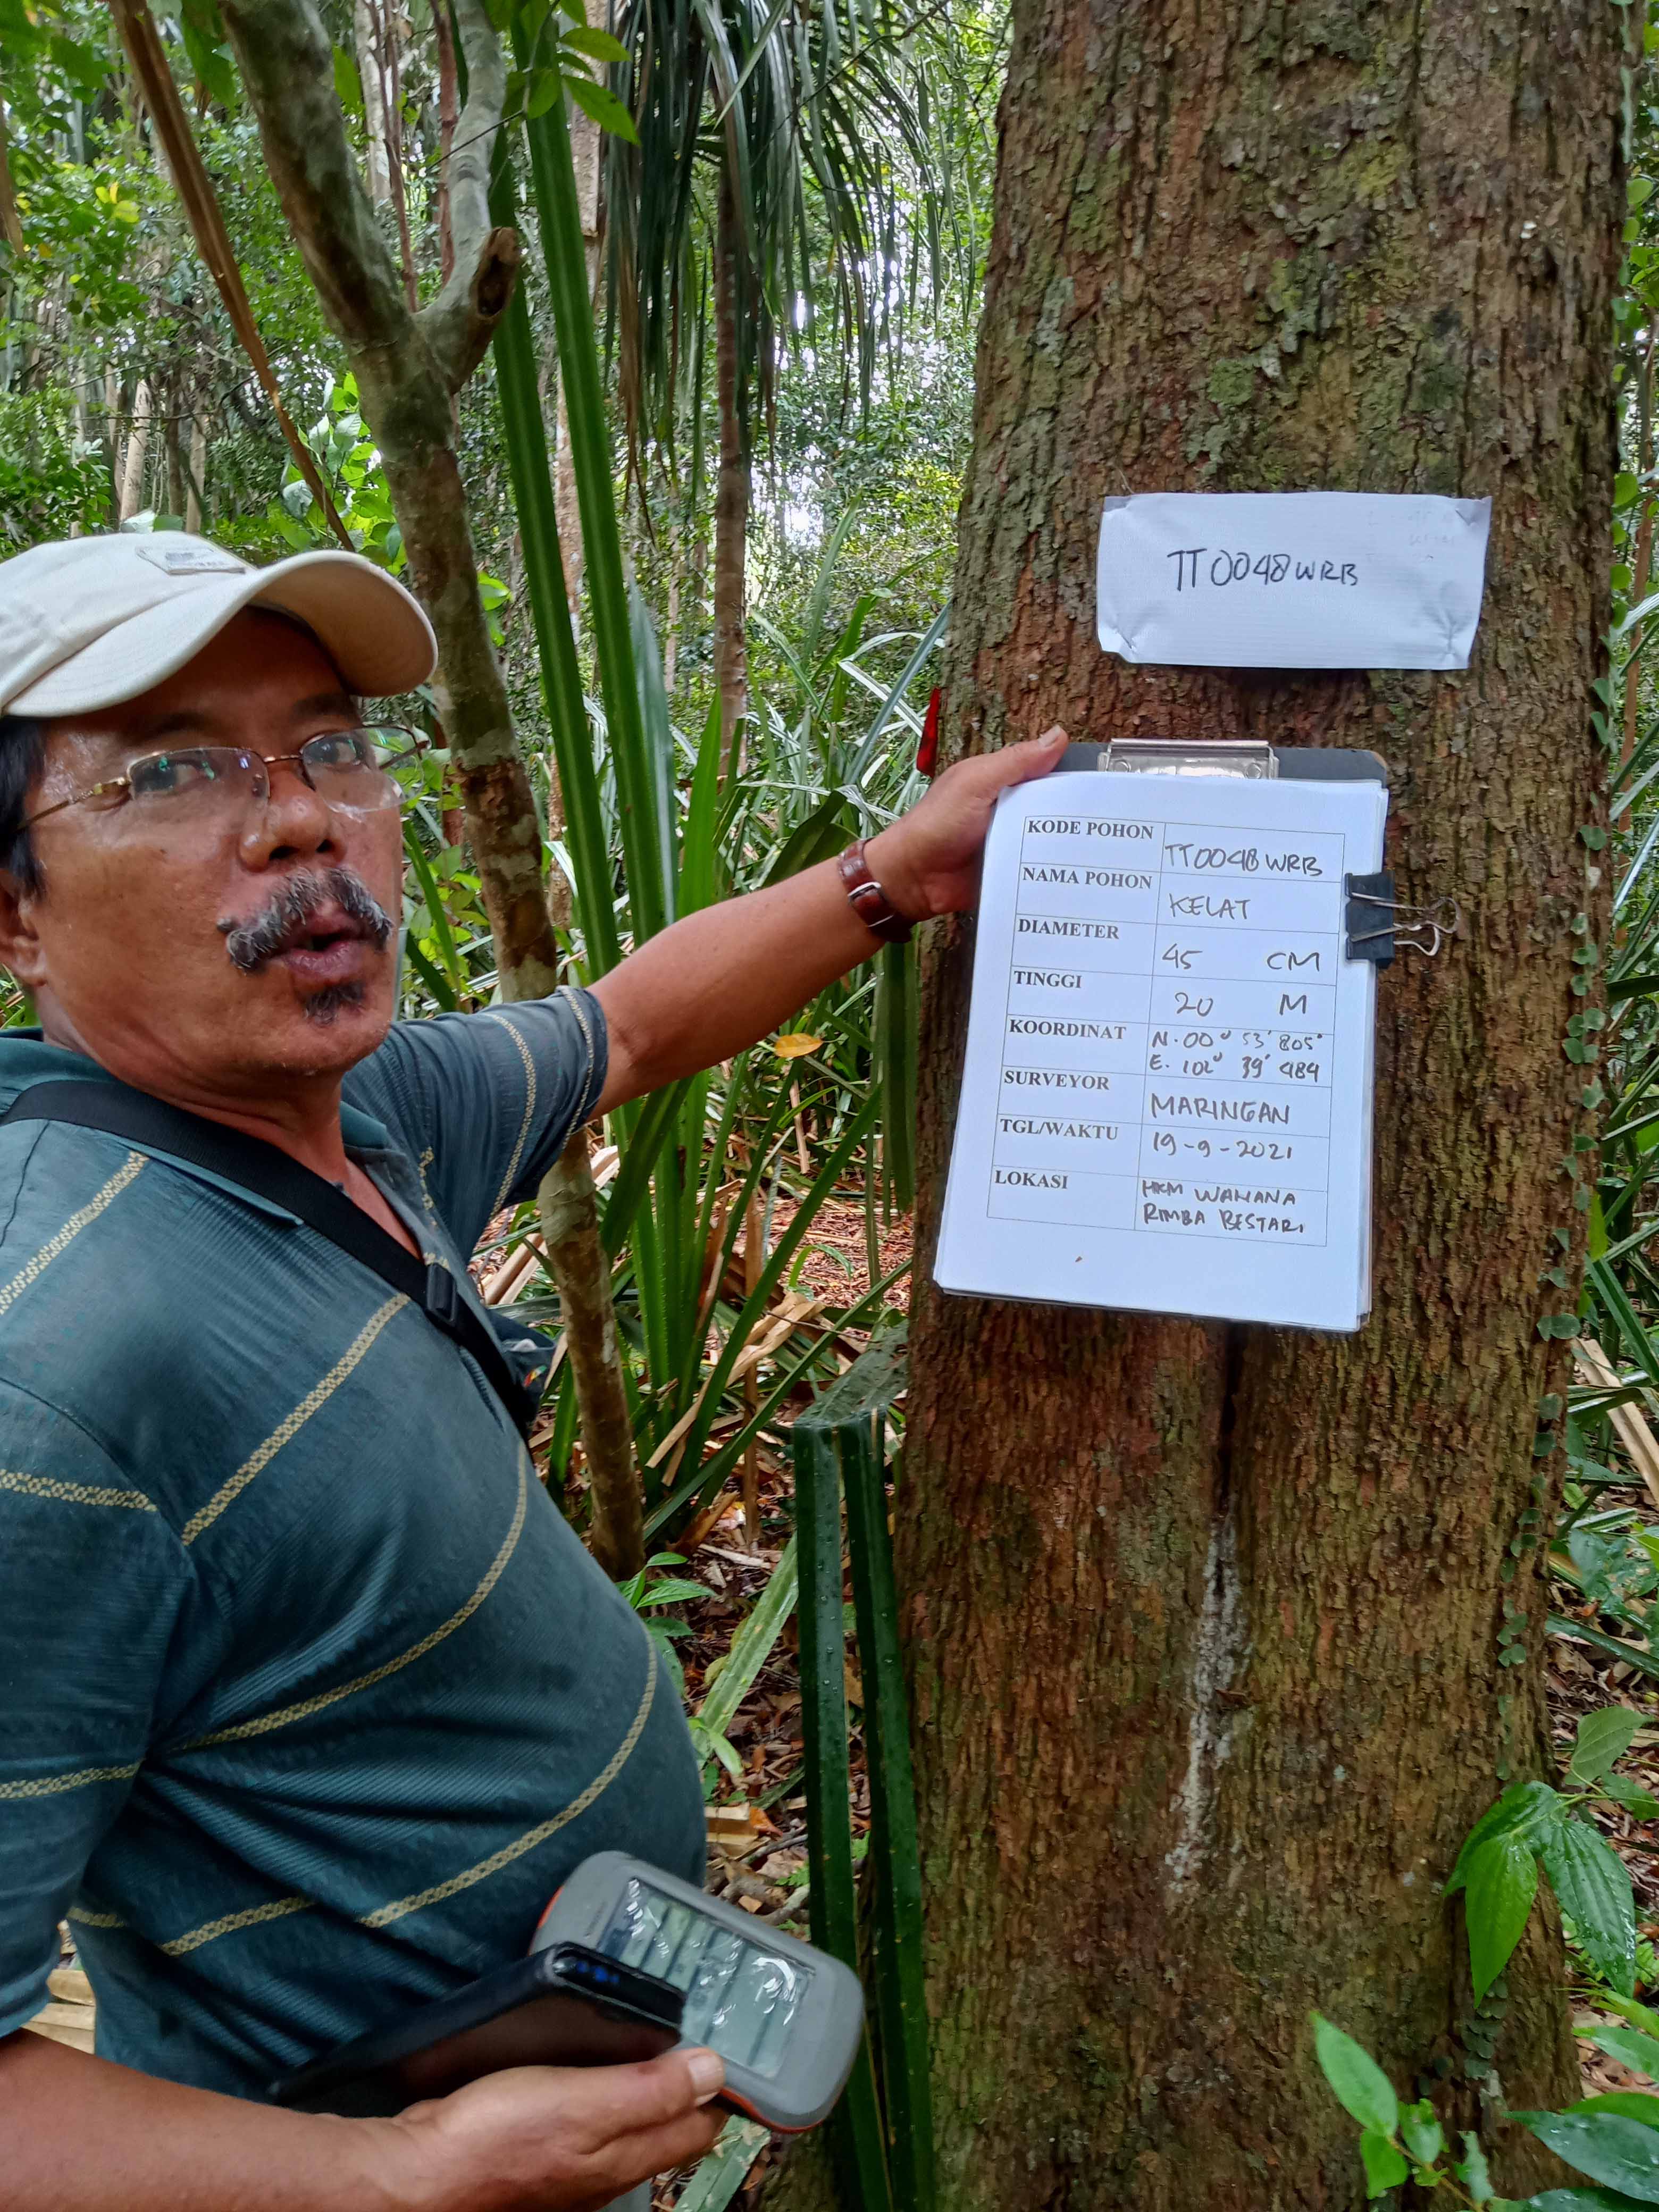 TT0048WRB
KODE POHON TT0048WRB
NAMA POHON KELAT
DIAMETER 45 CM
TINGGI 20 M
KOORDINAT N. 00° 53' 805"
E. 102° 39' 484
SURVEYOR MARINGAN
TGL/WAKTU 19-9-2021
LOKASI HKM WAHANA
RIMBA BESTARI